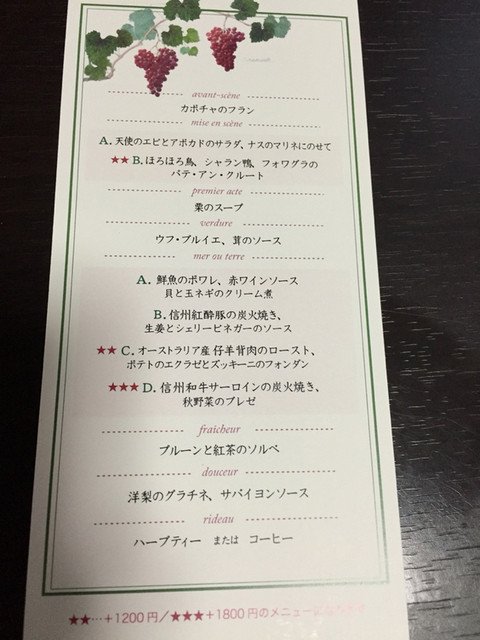 avant-scène
カボチャのフラン
mise en scène
A. 天使のエビとアボカドのサラダ、ナスのマリネにのせて
★★ B. ほろほろ鳥、シャラン鴨、フォワグラの
パテ・アン・クルート
premier acte
栗のスープ
verdure
ウフ・ブルイエ、茸のソース
mer ou terre
A. 鮮魚のポワレ、赤ワインソース
貝と玉ネギのクリーム煮
B. 信州紅酔豚の炭火焼き、
生姜とシェリービネガーのソース
★★ C. オーストラリア産 仔羊背肉のロースト、
ポテトのエクラゼとズッキーニのフォンダン
★★★ D. 信州和牛サーロインの炭火焼き、
秋野菜のブレゼ
fraîcheur
プルーンと紅茶のソルベ
douceur
洋梨のグラチネ、サバイヨンソース
rideau
ハーブティー または コーヒー
★★…+1200円/★★★+1800円のメニュー